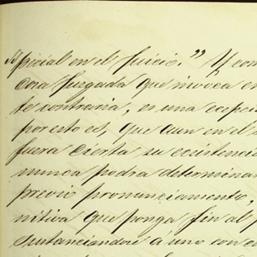 pecial en el juicio." Y con
cosa juzgada que invoca en
te contraria, es una ecepci
por esto el, que aun en el
fuera cierta su ecsistenci
nunca podra determinar
previo pronunciamiento,
nitiva que ponga fin al p
a uno con